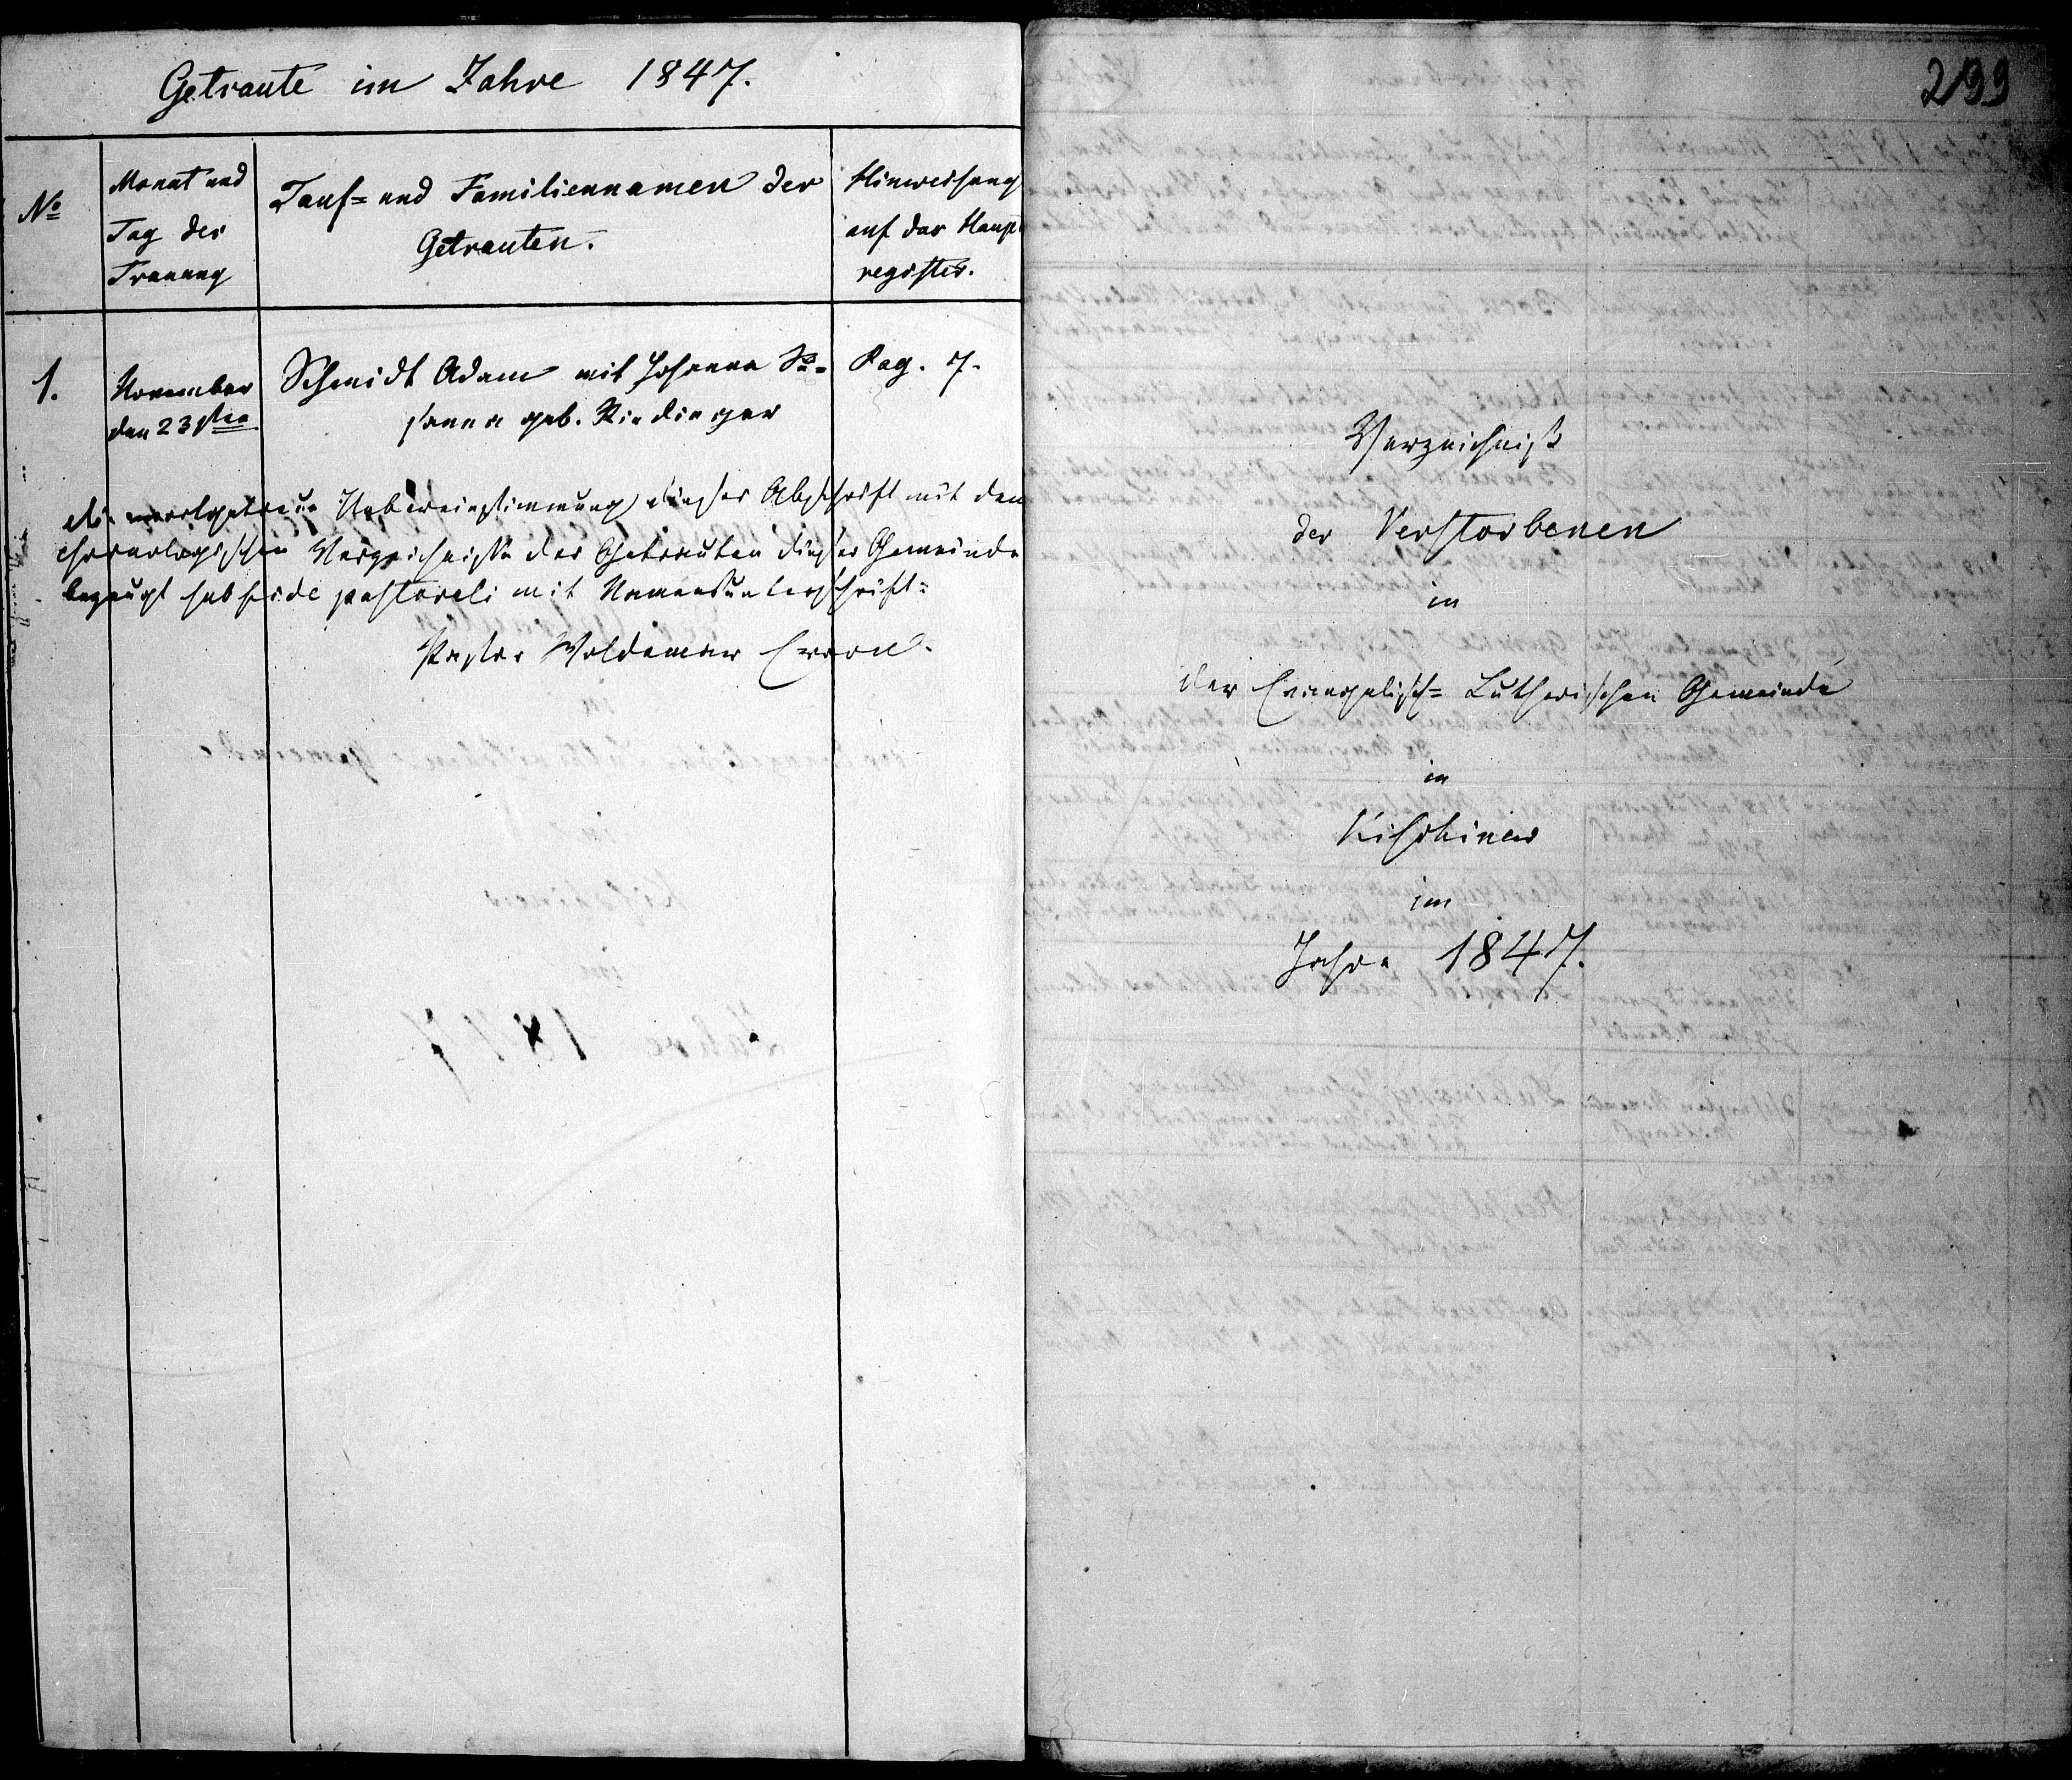 Getraute im Jahre 1847.
No
Monat und
Tag der
Trauung
Tauf= und Familiennamen der
Getrauten.
Hinweisung
auf das Haupt
register.
1.
November
den 23sten
Schmidt Adam mit Johanna Su=
sanna geb. Riedinger
Pag. 7.
die wortgetreue Uebereinstimmung dieser Abschrift mit dem
chronologischen Verzeichnisse der Getrauten dieser Gemeinde
bezeugt sub fide pastorali mit Namensunterschrift:
Pastor Woldemar
299
Verzeichniß
der Verstorbenen
in
der Evangelisch= Lutherischen Gemeinde
in
Kischinew
im
Jahre 1847.